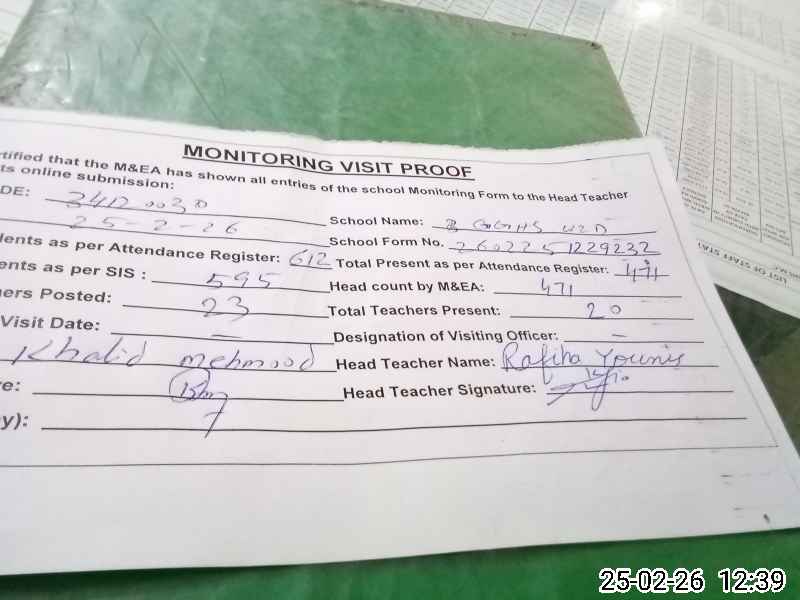 MONITORING VISIT PROOF
rtified that the M&EA has shown all entries of the school Monitoring Form to the Head Teacher
ts online submission:
DE: 34120030
School Name: GGHS
25-2-26
School Form No. 2602251229232
dents as per Attendance Register: 612
Total Present as per Attendance Register: 471
ents as per SIS : 595
Head count by M&EA: 471
hers Posted: 23
Total Teachers Present: 20
Visit Date: —
Designation of Visiting Officer: —
Khalid mehmood
Head Teacher Name: Rafiha Younis
re:
Head Teacher Signature:
y):
LIST OF STAFF STAT
25-02-26 12:39